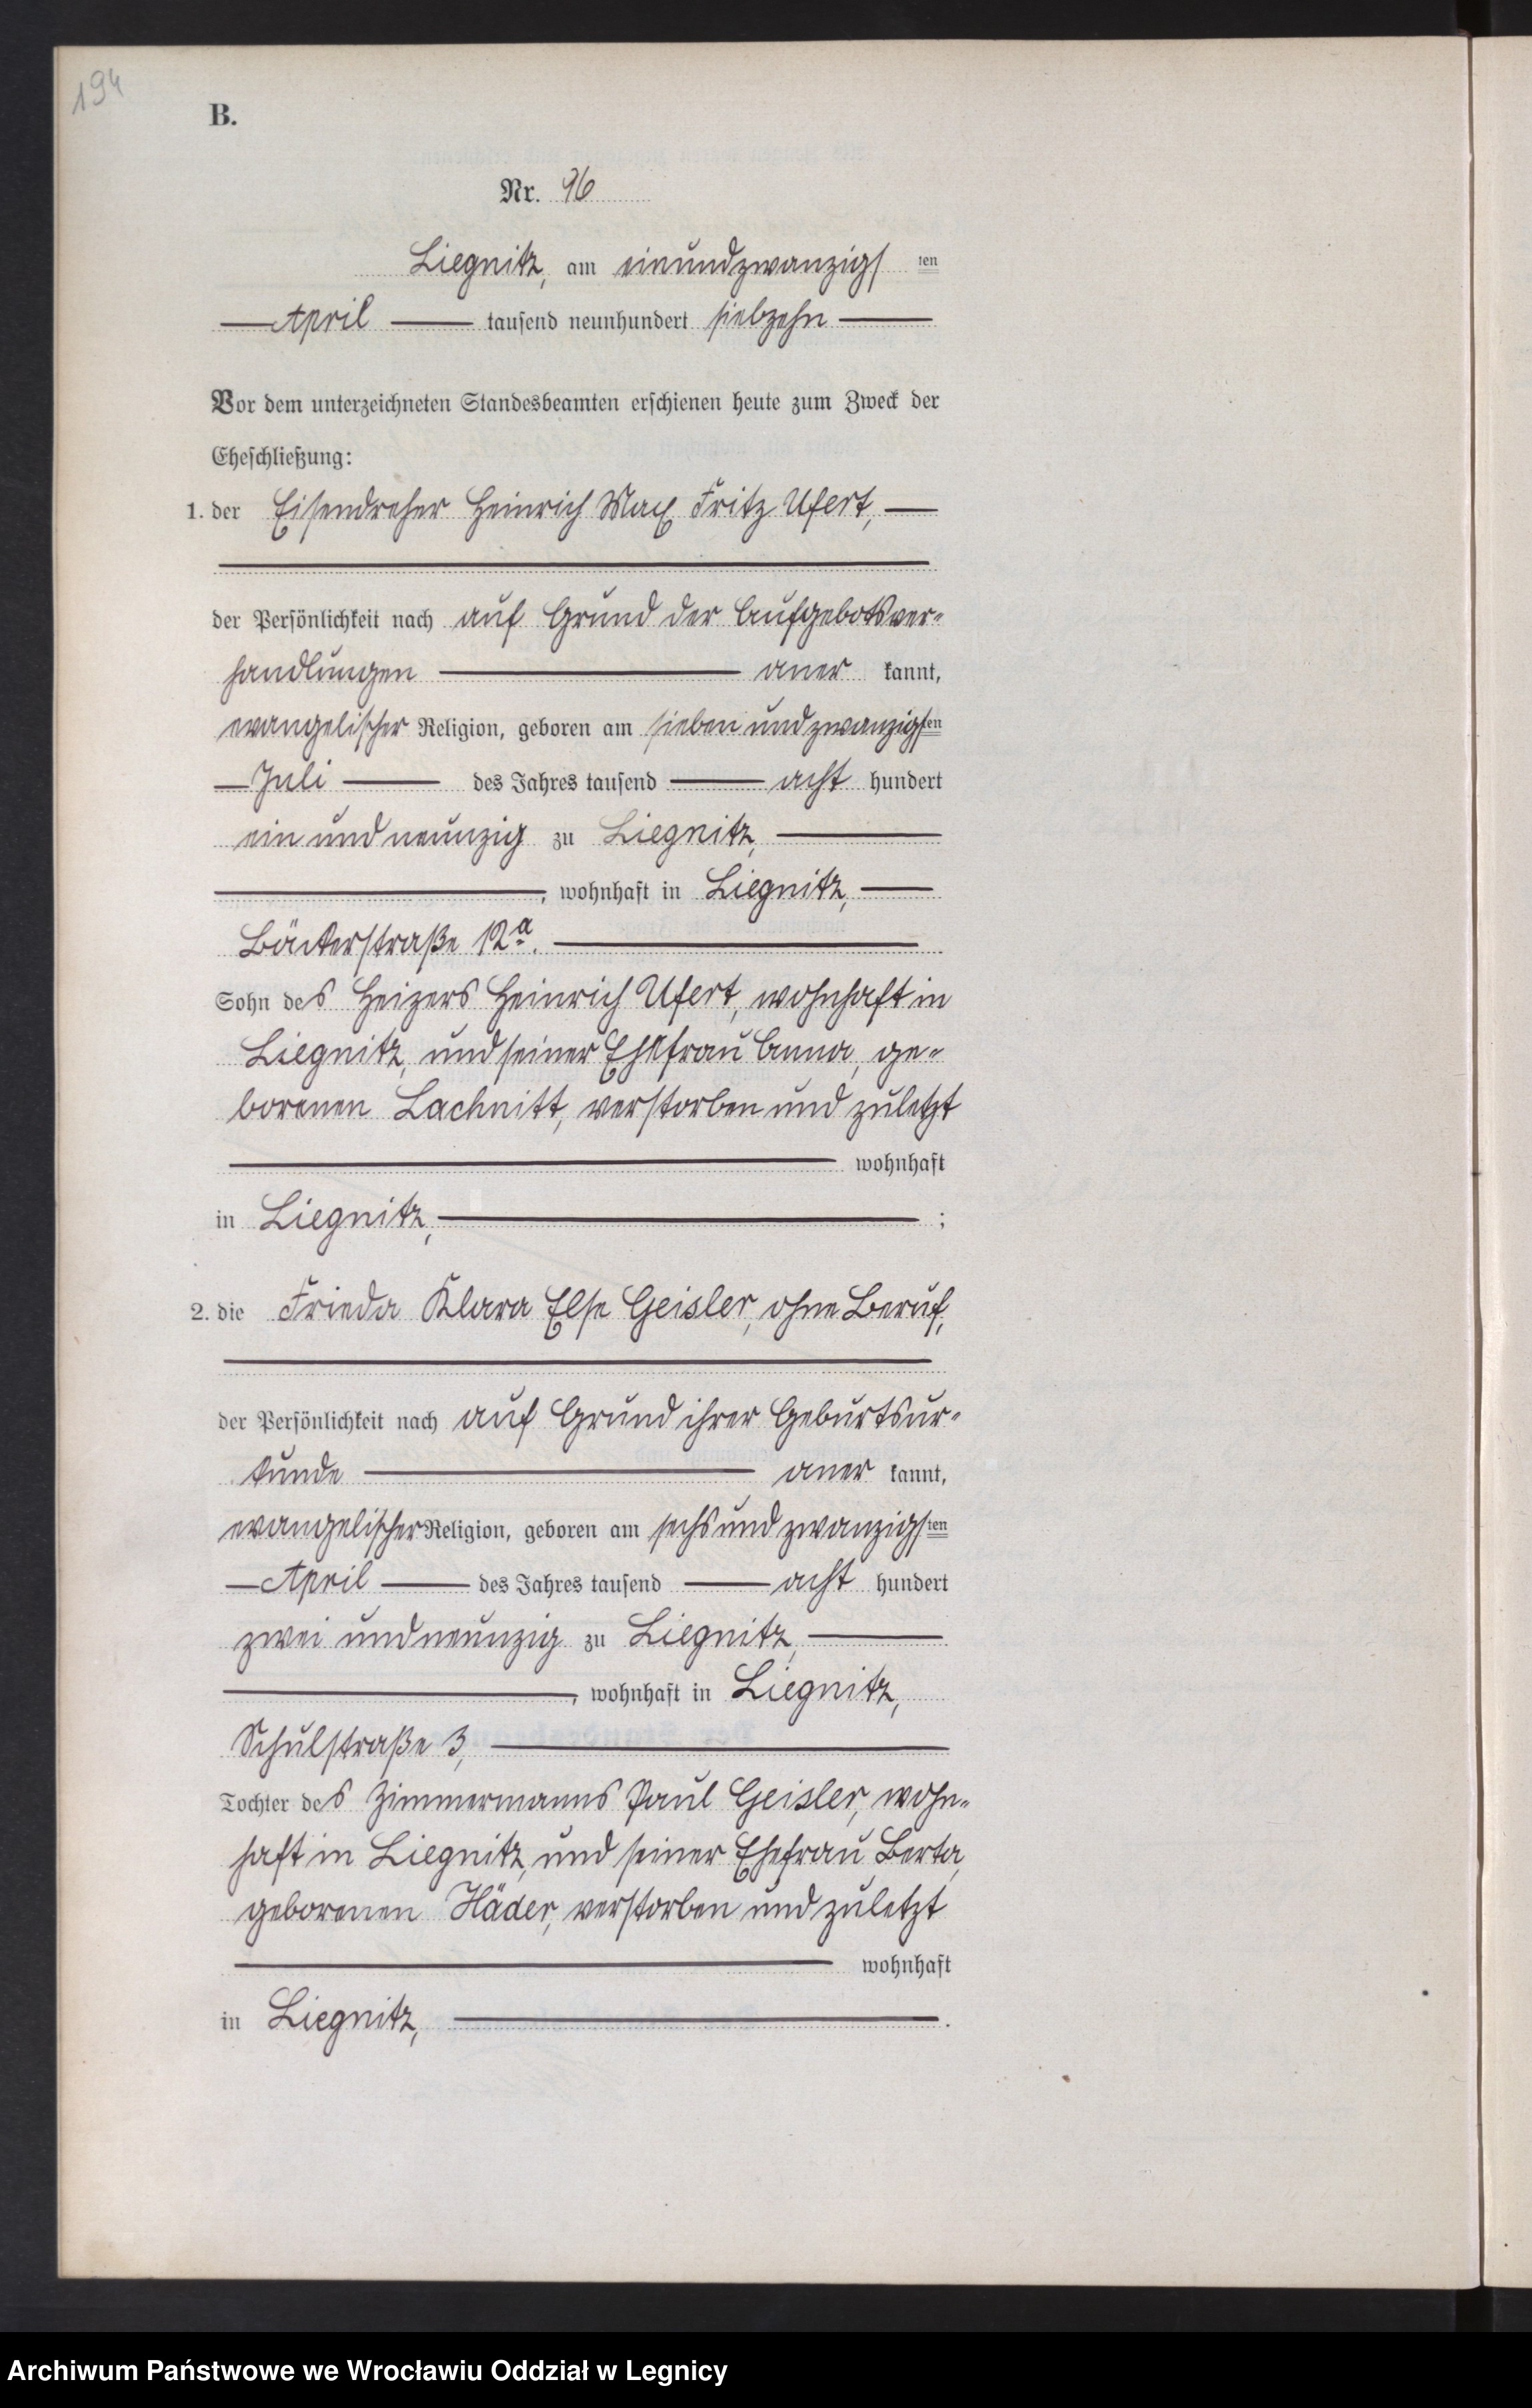 194
B.
Nr. 96
Liegnitz, am einundzwanzigsten
April tausend neunhundert siebzehn
Vor dem unterzeichneten Standesbeamten erschienen heute zum Zweck der
Eheschließung:
1. der Eisendreher Heinrich Max Fritz Ufert,
der Persönlichkeit nach auf Grund der Aufgebotsver-
handlungen aner kannt,
evangelischer Religion, geboren am siebenundzwanzigsten
Juli des Jahres tausend acht hundert
einundneunzig zu Liegnitz,
, wohnhaft in Liegnitz,
Bäckerstraße 12a.
Sohn des Heizers Heinrich Ufert, wohnhaft in
Liegnitz, und seiner Ehefrau Anna, ge-
borenen Lachnitt, verstorben und zuletzt
wohnhaft
in Liegnitz, ;
2. die Frieda Klara Else Geisler, ohne Beruf,
der Persönlichkeit nach auf Grund ihrer Geburtsur-
kunde aner kannt,
evangelischer Religion, geboren am sechsundzwanzigsten
April des Jahres tausend acht hundert
zweiundneunzig zu Liegnitz,
, wohnhaft in Liegnitz,
Schulstraße 3,
Tochter des Zimmermanns Paul Geisler, wohn-
haft in Liegnitz, und seiner Ehefrau, Berta,
geborenen Häder, verstorben und zuletzt
wohnhaft
in Liegnitz, .
Archiwum Państwowe we Wrocławiu Oddział w Legnicy